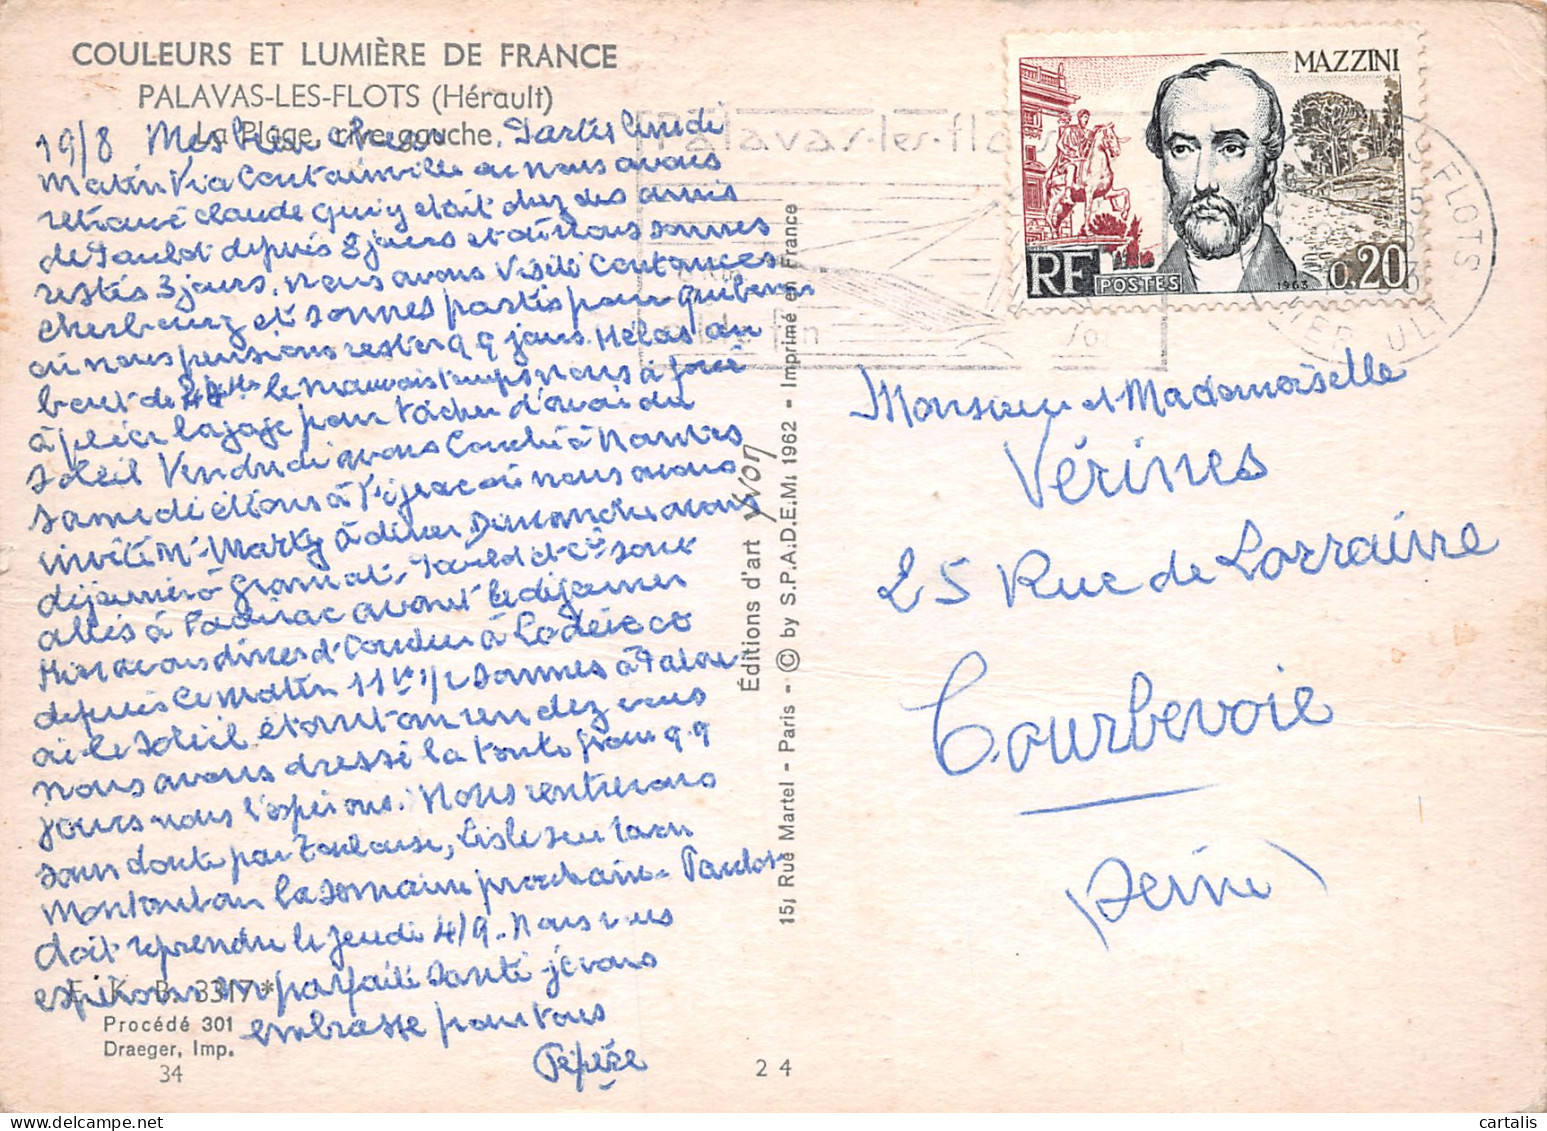 COULEURS ET LUMIÈRE DE FRANCE
PALAVAS-LES-FLOTS (Hérault)
La Plage, rive gauche
19/8 Mes bien chers, Partis lundi
matin via Coutainville ou nous avons
retrouvé claude qui y était chez des amis
de Paulot depuis 8 jours et où nous sommes
restés 3 jours, nous avons visité Coutances
Cherbourg et sommes partis pour Quiberon
où nous pensions rester 9 jours. Hélas au
bout de le mauvais temps nous a forcé
à plier bagage pour tâcher d'avoir du
soleil Vendredi avons couché à Nantes
samedi étions à où nous avons
invité Mr Marty à diner, Dimanche avons
déjeuné à Gramat. Paulot et Cie sont
allés à Padirac avant le déjeuner
Hier avons diner et coucher à Lodève
depuis ce matin 11h 1/2 sommes à Palavas
où le soleil étant au rendez vous
nous avons dressé la tente pour 9
jours nous l'espérons. Nous rentrerons
sans doute par Toulouse, Lisle sur Tarn
Montauban la semaine prochaine. Paulot
doit reprendre le jeudi 4/9. Nous vous
espérons en parfaite santé je vous
embrasse pour tous
Pépère
E. K. B. 3317*
Procédé 301
Draeger, Imp.
34
24
Éditions d'art yvon
15, Rue Martel - Paris - © by S.P.A.D.E.M. 1962 - Imprimé en France
Palavas-les-flots
MAZZINI
RF POSTES 1963 0,20
S-FLOTS
HERAULT
Monsieur et Mademoiselle
Vérines
25 Rue de Lorraine
Courbevoie
(Seine)
cartalis